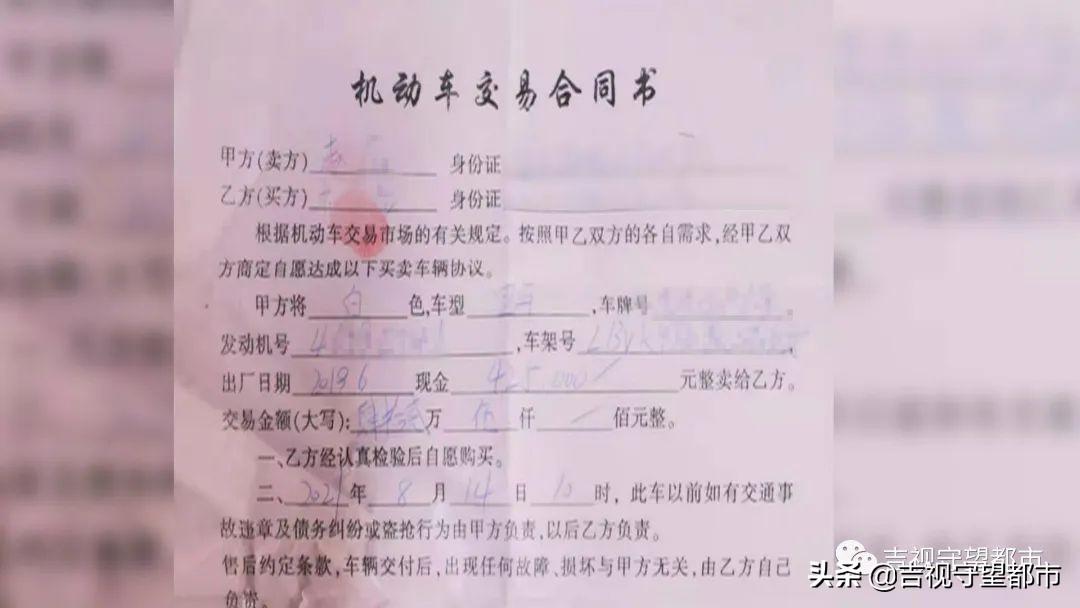 机动车交易合同书
甲方(卖方) 身份证
乙方(买方) 身份证
根据机动车交易市场的有关规定。按照甲乙双方的各自需求,经甲乙双
方商定自愿达成以下买卖车辆协议。
甲方将 白 色,车型 ,车牌号 .
发动机号 ,车架号 .
出厂日期 2019 6 现金 425.000 元整卖给乙方。
交易金额(大写): 万 伍 仟 佰元整。
一、乙方经认真检验后自愿购买。
二、2021年 8 月 14 日 10 时，此车以前如有交通事
故违章及债务纠纷或盗抢行为由甲方负责,以后乙方负责。
售后约定条款,车辆交付后,出现任何故障、损坏与甲方无关,由乙方自己
负责。
吉视守望都市
头条 @吉视守望都市